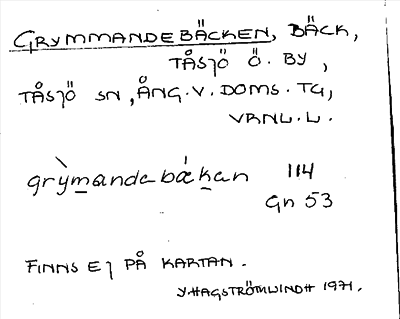 GRYMMANDEBÄCKEN, BÄCK,
TÅSJÖ Ö. BY,
TÅSJÖ SN, ÅNG. V. DOMS. TG,
VRNL. L.
grỳmandebákan 114
Gn 53
FINNS EJ PÅ KARTAN.
YHAGSTRÖMLINDH 1971.